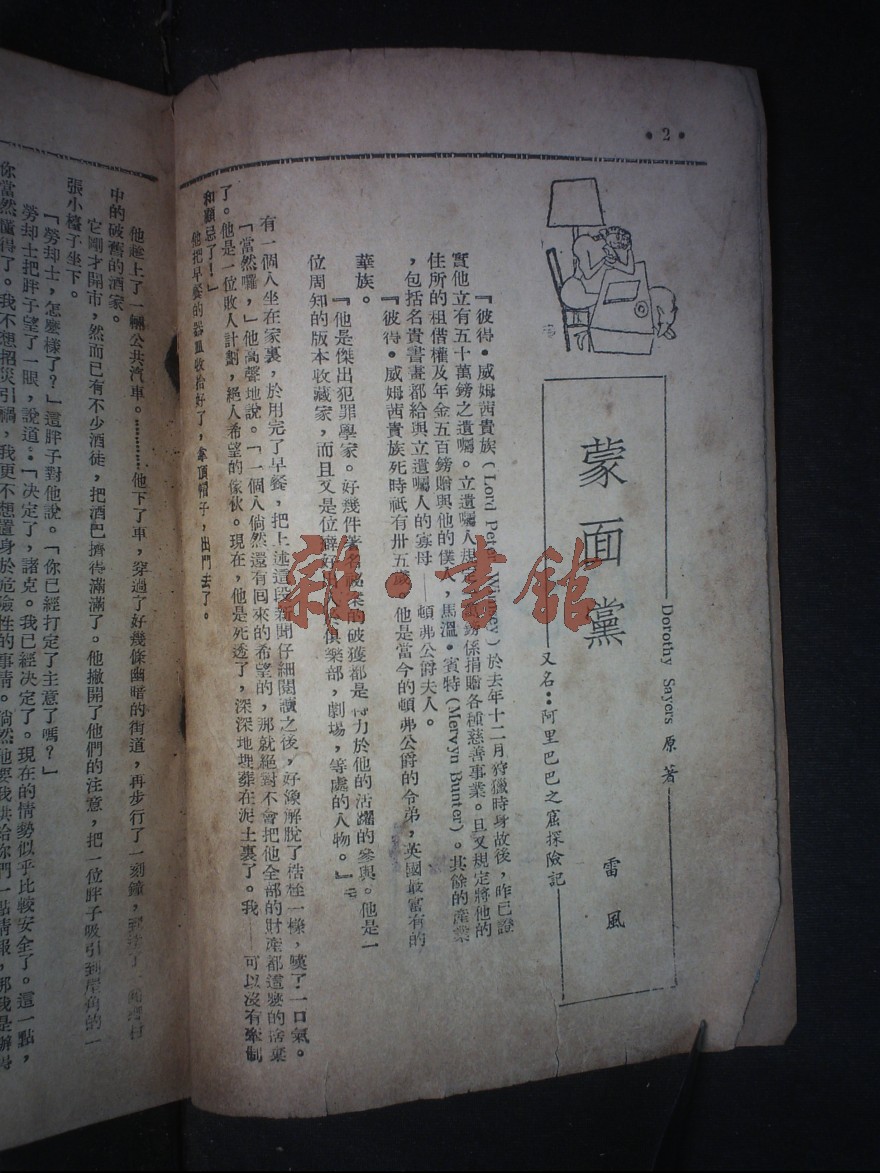 • 2 •
蒙面黨
Dorothy Sayers 原著
又名：阿里巴巴之窟探險記
雷風
『彼得•威姆茜貴族（Lord Peter Wimsey）於去年十二月狩獵時身故後，昨已證
實他立有五十萬鎊之遺囑。立遺囑人規定 鎊係捐贈各種慈善事業。且又規定將他的
住所的租借權及年金五百鎊贈與他的僕人，馬溫•賓特（Mervyn Bunter）。其餘的產業
，包括名貴書畫都給與立遺囑人的寡母——頓弗公爵夫人。
『彼得•威姆茜貴族死時祇有卅五歲。他是當今的頓弗公爵的令弟，英國最富有的
華族。
『他是傑出犯罪學家。好幾件著名 案的破獲都是得力於他的活躍的參與。他是一
位周知的版本收藏家，而且又是位癖好 俱樂部，劇場，等處的人物。』
有一個人坐在家裏，於用完了早餐，把上述這段新聞仔細閱讀之後，好像解脫了桎梏一樣，嘆了一口氣。
「當然囉，」他高聲地說。「一個人倘然還有回來的希望的，那就絕對不會把他全部的財產都這樣的告棄
了。他是一位敗人計劃，絕人希望的傢伙。現在，他是死透了，深深地埋葬在泥土裏了。我——可以沒有牽制
和顧忌了！」
他把早餐的器皿收拾好了，拿頂帽子，出門去了。
他趁上了一輛公共汽車。…………他下了車，穿過了好幾條幽暗的街道，再步行了一刻鐘， 鄉村
中的破舊的酒家。
它剛才開市，然而已有不少酒徒，把酒巴擠得滿滿了。他撇開了他們的注意，把一位胖子吸引到屋角的一
張小檯子坐下。
「勞却士，怎麼樣了？」這胖子對他說。「你已經打定了主意了嗎？」
勞却士把胖子望了一眼，說道：「決定了，諸克。我已經決定了。現在的情勢似乎比較安全了。這一點，
你當然懂得了。我不想招災引禍，我更不想置身於危險性的事情。倘然他要我供給你們一點情報，那我是辦得
雜•書館